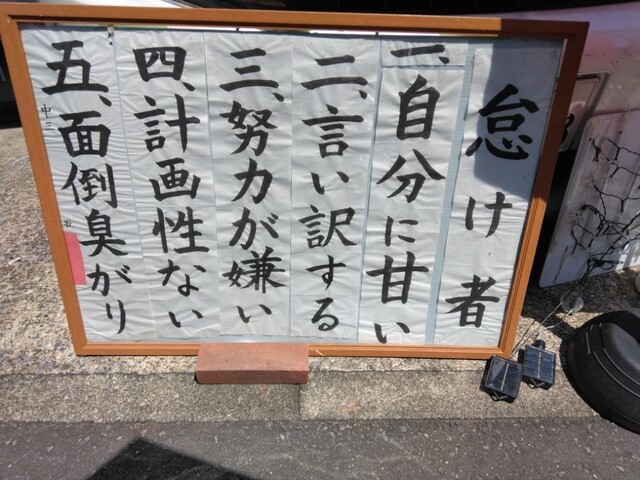 怠け者
一、自分に甘い
二、言い訳する
三、努力が嫌い
四、計画性ない
五、面倒臭がり